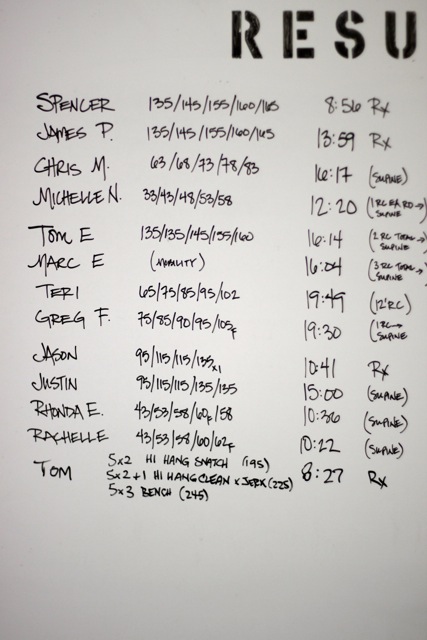 RESU
SPENCER 135/145/155/160/165 8:56 Rx
JAMES P. 135/145/155/160/165 13:59 Rx
CHRIS M. 63/68/73/78/83 16:17 (SUPINE)
MICHELLE N. 33/43/48/53/58 12:20 (1 RC EA RD →
SUPINE
TOM E 135/135/145/155/160 16:14 (2 RC TOTAL →
SUPINE
MARC E (MOBILITY) 16:04 (3 RC TOTAL →
SUPINE
TERI 65/75/85/95/102 19:49 (12" RC)
GREG F. 75/85/90/95/105F 19:30 (1 RC →
SUPINE
JASON 95/115/115/135x1 10:41 Rx
JUSTIN 95/115/115/135/135 15:00 (SUPINE)
RHONDA E. 43/53/58/60F/58 10:36 (SUPINE)
RACHELLE 43/53/58/60/62F 10:22 (SUPINE)
TOM 5x2 HI HANG SNATCH (195) 8:27 Rx
5x2+1 HI HANG CLEAN x JERK (225)
5x3 BENCH (245)